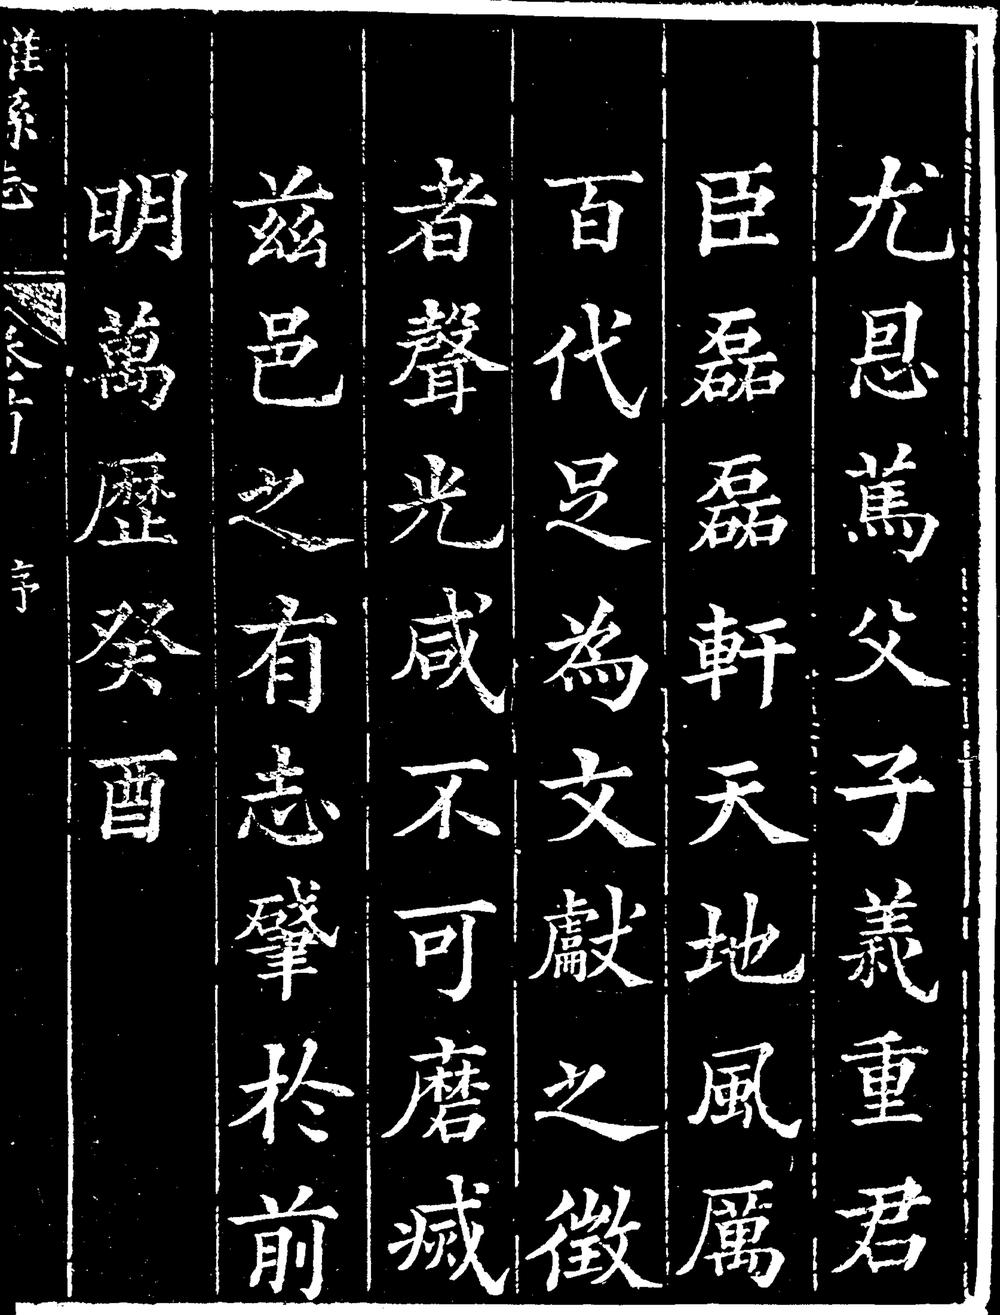 尤恩篤父子義重君
臣磊磊軒天地風厲
百代足為文獻之徵
者聲光咸不可磨滅
兹邑之有志肇於前
明萬歷癸酉
序